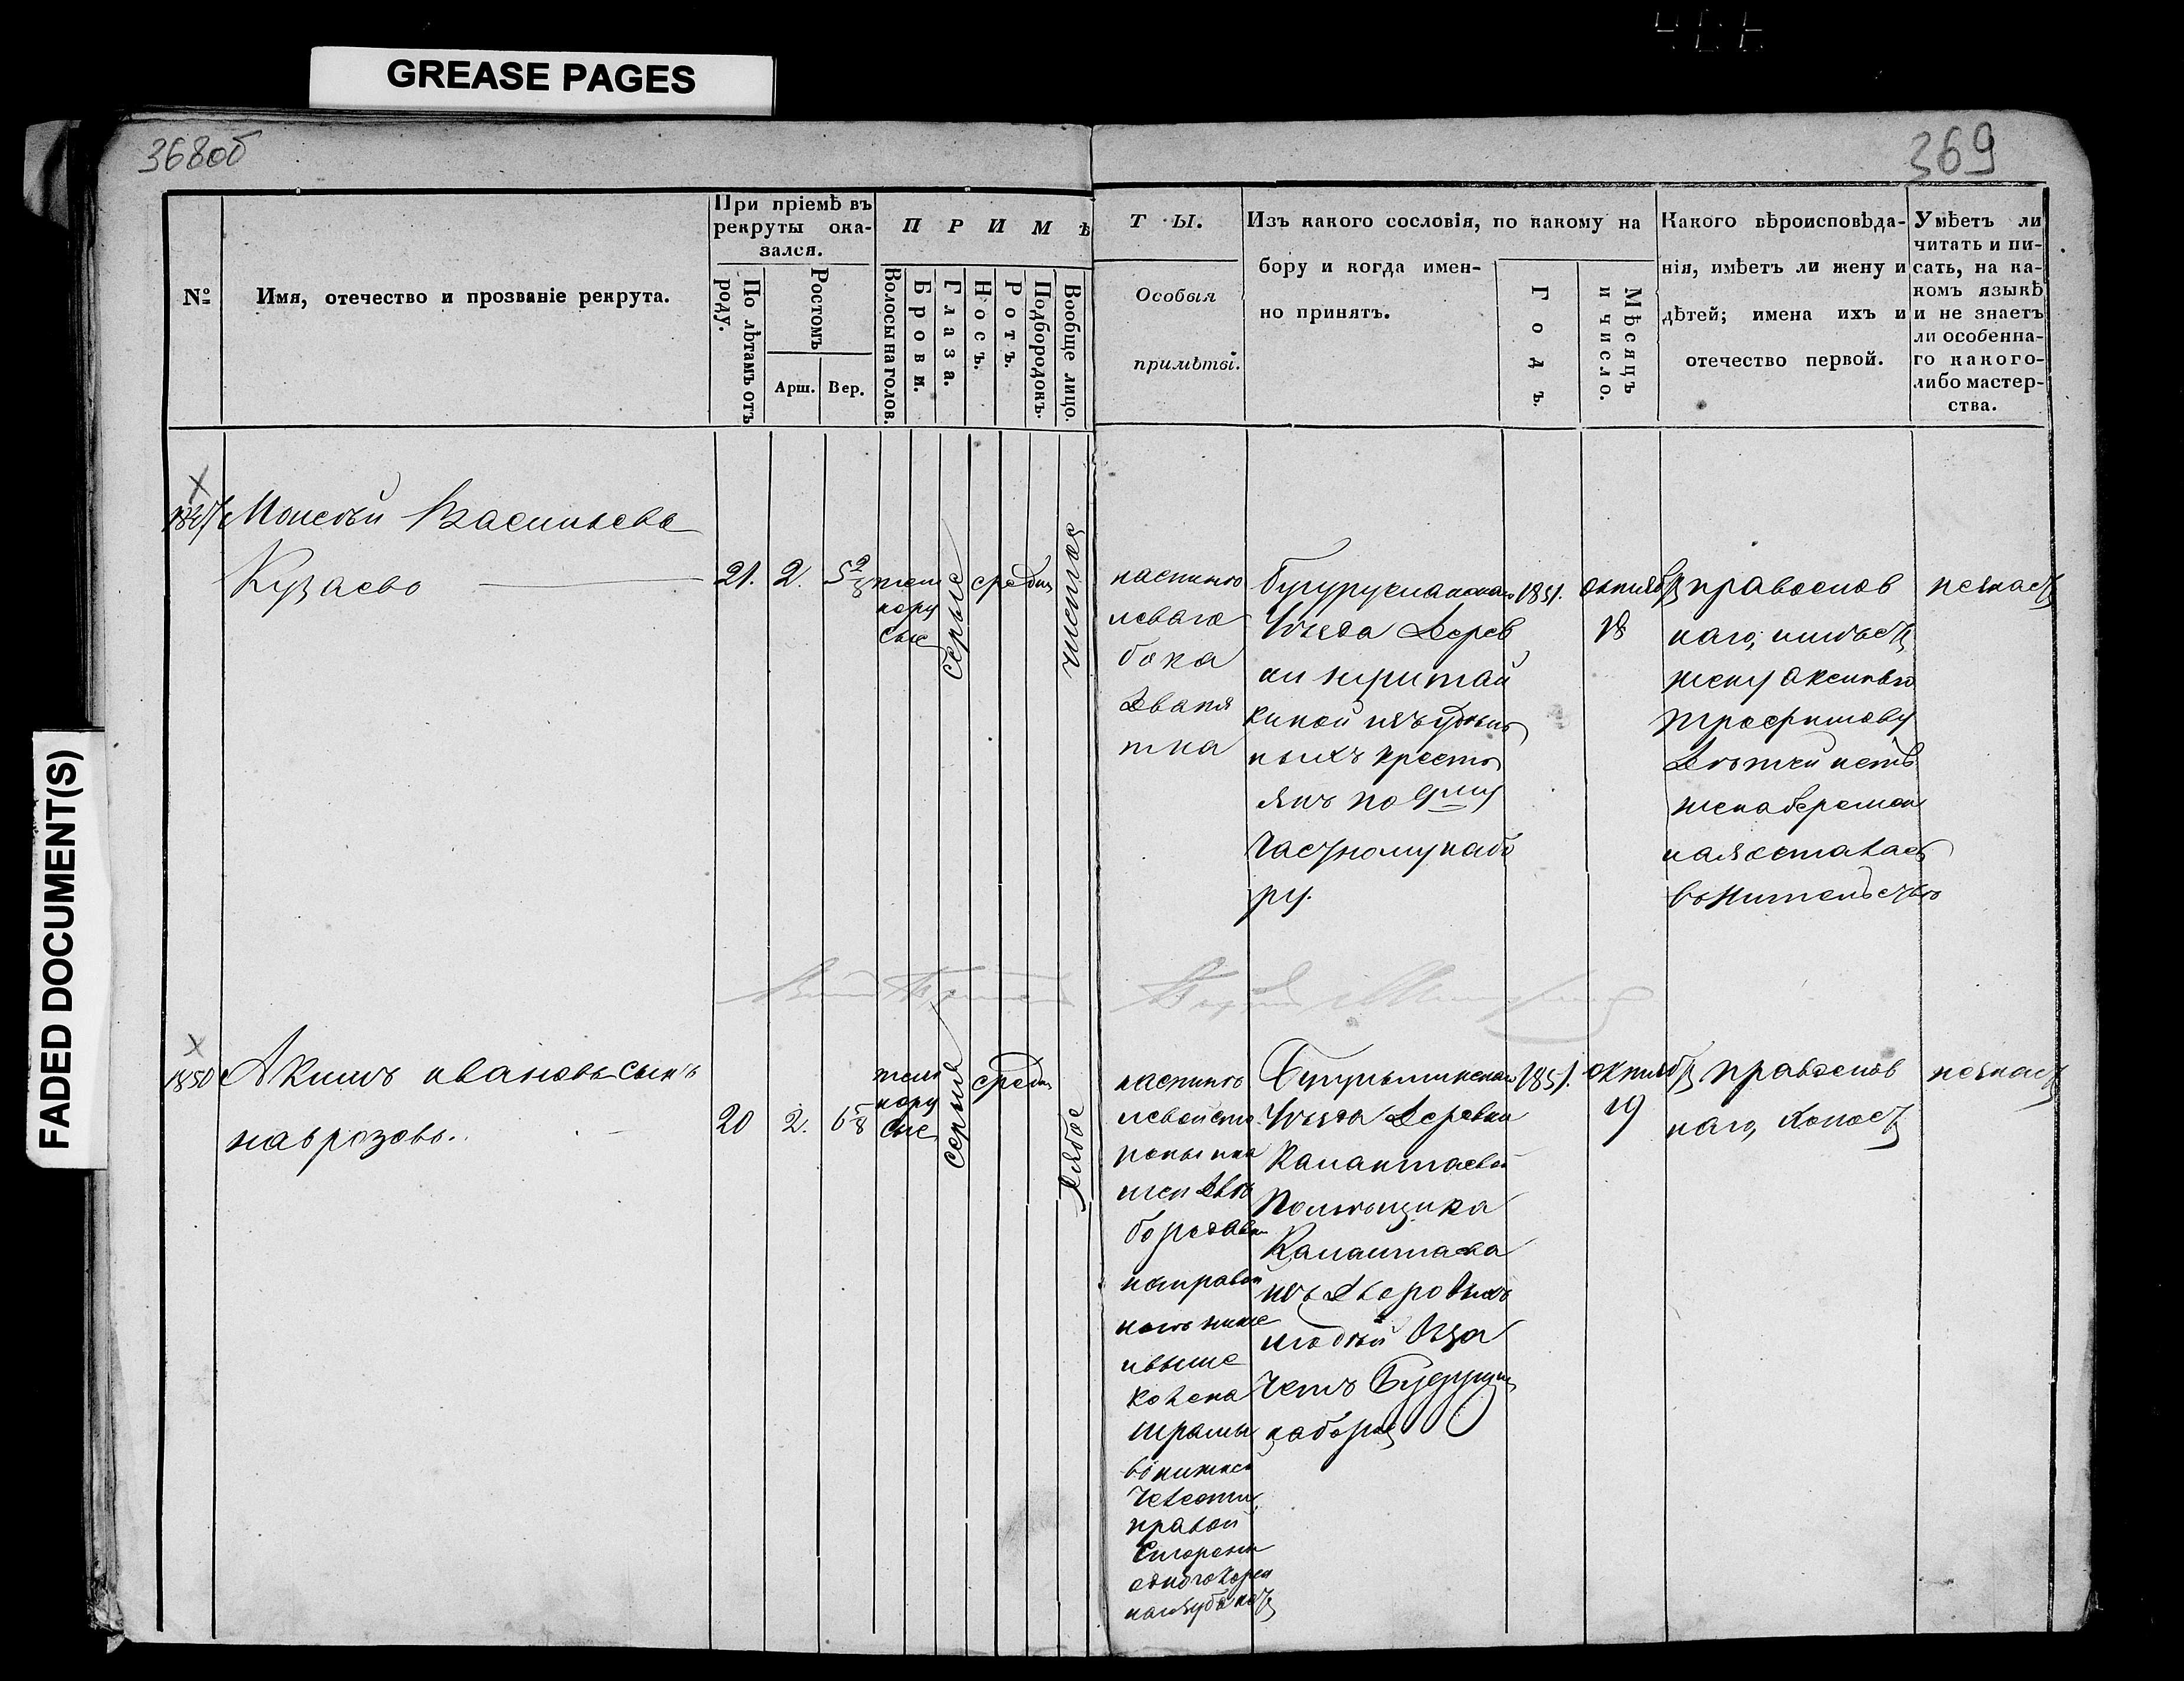 GREASE PAGES
FADED DOCUMENT(S)
368об
369
№
Имя, отечество и прозваніе рекрута.
При пріемѣ въ
рекруты ока-
зался.
По лѣтамъ отъ
роду.
Ростомъ
Арш. Вер.
ПРИМѢ
ТЫ.
Волосы на голов.
Брови.
Глаза.
Носъ.
Ротъ.
Подбородокъ.
Вообще лицо.
Особыя
примѣты.
Изъ какого сословія, по какому на
бору и когда имен-
но принятъ.
Годъ.
Мѣсяцъ
и число.
Какого вѣроисповѣда-
нія, имѣетъ ли жену и
дѣтей; имена ихъ и
отечество первой.
Умѣетъ ли
читать и пи-
сать, на ка-
комъ языкѣ
и не знаетъ
ли особенна-
го какого-
либо мастер-
ства.
Моисѣй Васильевъ
Кузаевъ
21. 2. 5 2/8
темн
нору
сые
серые
средн
чистая
наспинѣ
леваго
бока
два пя
тна
Бугурусланскаго
Уѣзда Дерев
ни
киной изъ удѣль
ныхъ кресть
янъ по 9му
Частному набо
ру.
1851.
октября
18
православ
наго, имѣетъ
жену Аксинью
Трофимову
Дѣтей нетъ
жена беремен
ная осталась
въ жительствѣ
незнаетъ
1850
Акимъ ивановъ сынъ
наврозовъ.
20 2. 6 5/8
темн
нору
сые
серые
средн
рябое
наспинѣ
левой сто
роны пят
но две
бородавки
направой
ноге ниже
ивыше
колена
шрамы
въ нижней
Челюсти
правой
Стороны
одного корен
наго зуба нетъ
Бугульминскаго
Уѣзда Деревни
Калантаевой
Помѣщика
Калантаева
изъ дворовыхъ
людей въ за
Четъ Будущих
наборов
1851.
октября
19
православ
наго, холостъ
незнаетъ